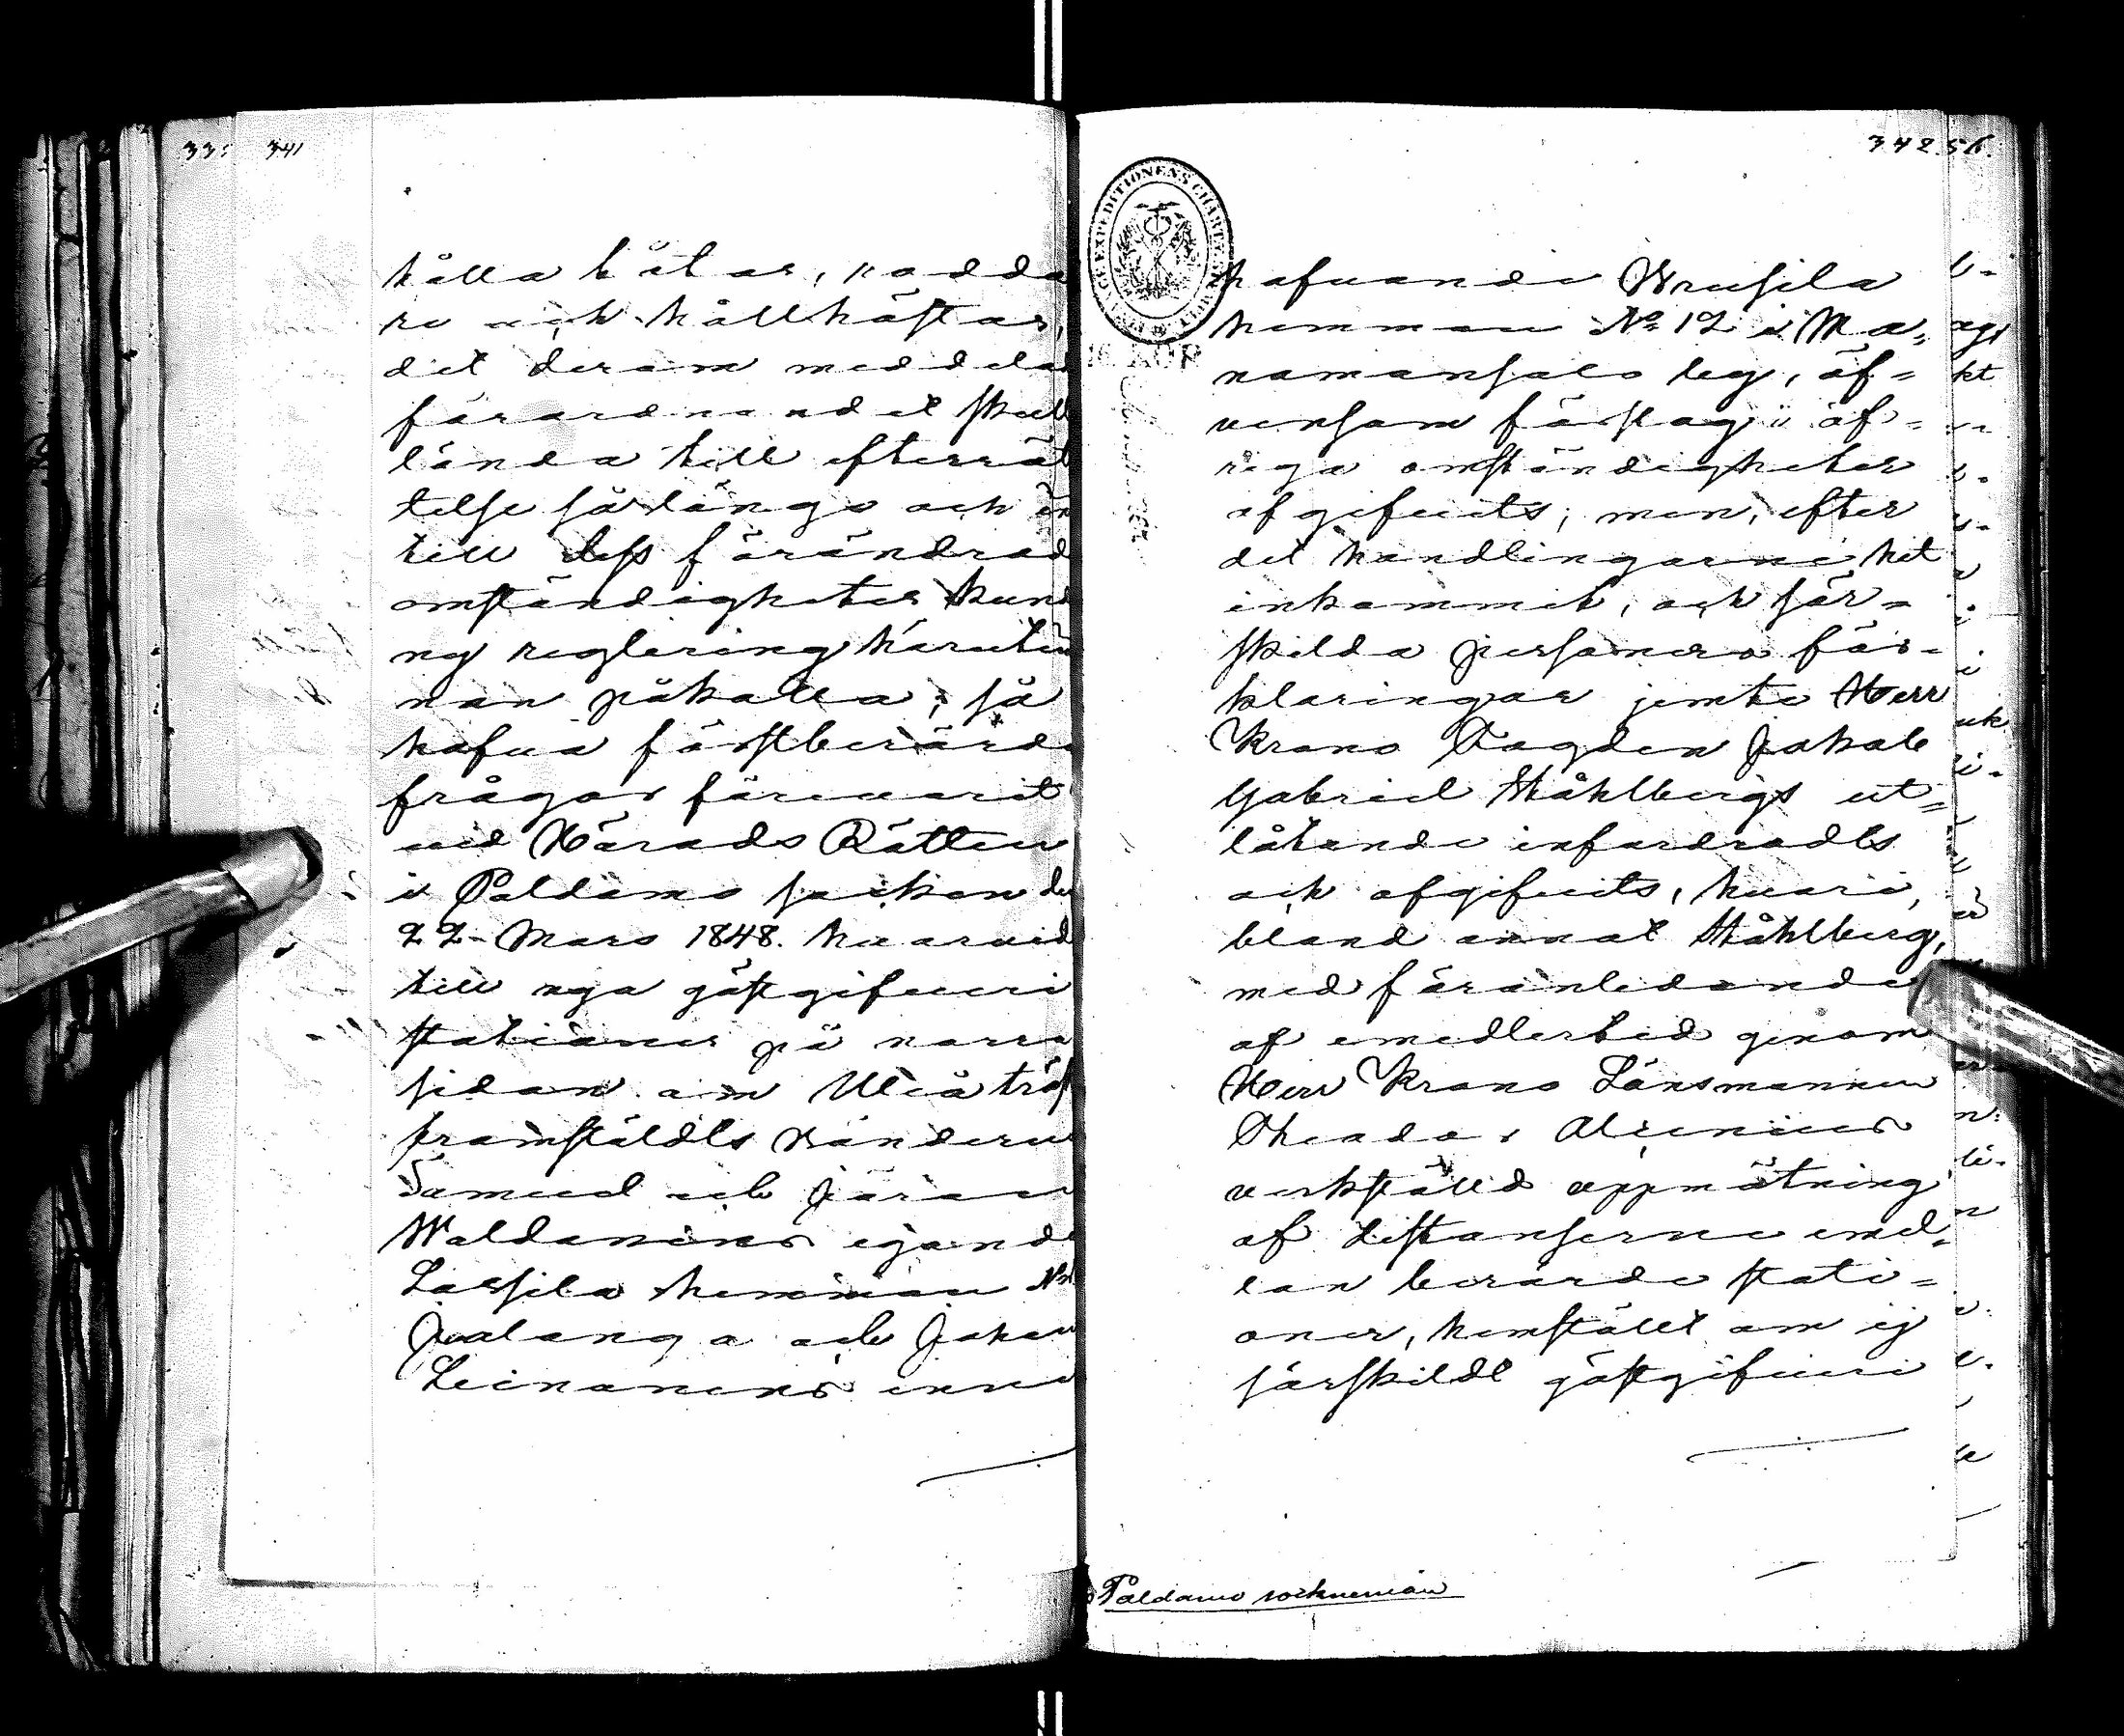 341
hålla båtar, rodda
re och hållhästar,
det derom meddela
förordnandet skull
lända till efterrät
telse sålänge och in
till dess förändrad
omständigheter kun
ny reglering häruten
nan påkalla; så
hafva förstberörde
frågor förevarit
vid Härads Rätten
i Paldamo socken den
22 Mars 1848. hvarvid
till nya gästgifveri
stationer på norra
sidan om Uleå träsk
framstäldts bönderne
Samuel och Göran
Waldanens egande
Lassila hemman No
Jaalanga och Johan
Leinonens inne
342. 56.
hafvande Wresila
hemman No 12 i Ma,
namansalo by, äf=
vensom förslag i öf=
riga omständigheter
afgifvits; men, efter
det handlingarne hit
inkommit, och sär=
skilda personers för-
klaringar jemte Herr
Krono Fogden Jakob
Gabriel Ståhlbergs ut=
låtande infordradts
och afgifvits, hvari,
bland annat Ståhlberg,
med föranledande
af emedlertid genom
Herr Krono Länsmannen
Theodor Alcenius
verkstäld uppmätning
af distanserne emel,
lan berörde stati=
oner, hemstält om ej
särskildt gästgifveri
Paldamo sockneman